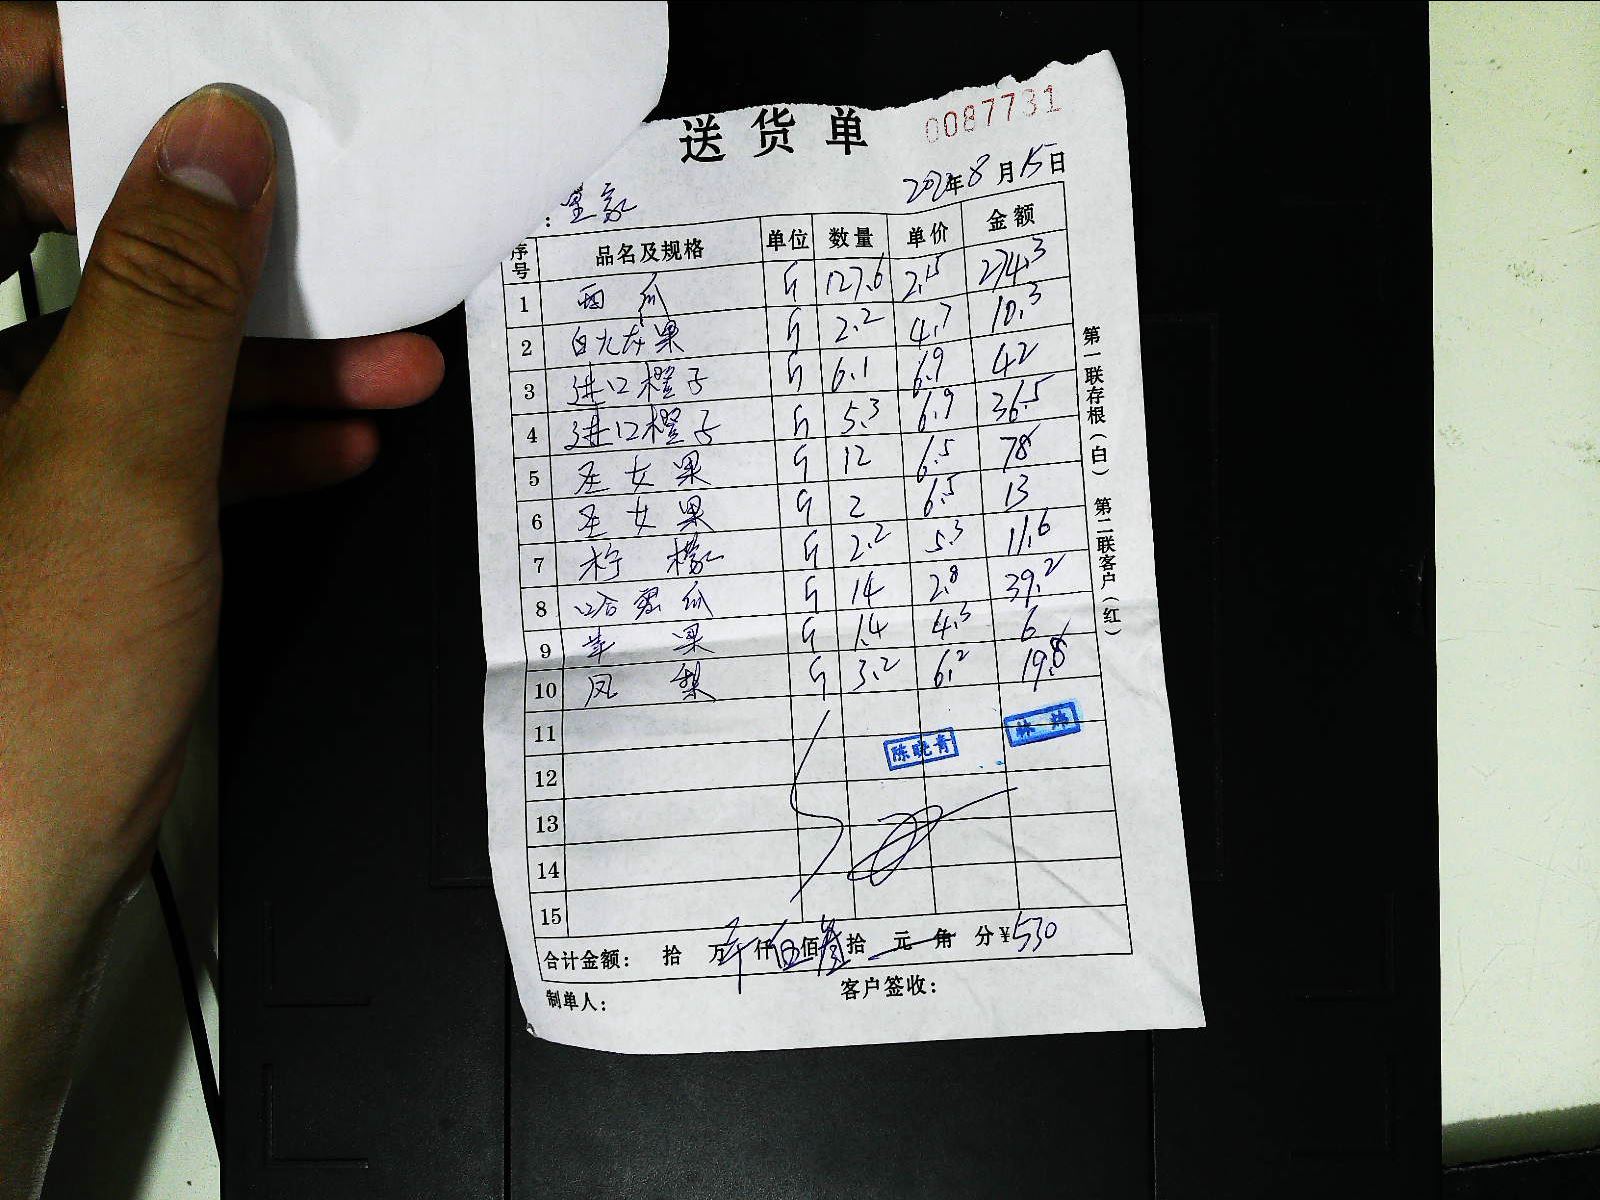 送货单 0087731
2020年8月15日
: 皇家
序号 品名及规格 单位 数量 单价 金额
1 西瓜 斤 127.6 2.15 274.3
2 白火龙果 斤 2.2 4.7 10.3
3 进口橙子 斤 6.1 6.9 42
4 进口橙子 斤 5.3 6.9 36.5
5 圣女果 斤 12 6.5 78
6 圣女果 斤 2 6.5 13
7 柠檬 斤 2.2 5.3 11.6
8 哈密瓜 斤 14 2.8 39.2
9 苹果 斤 1.4 4.3 6
10 凤梨 斤 3.2 6.2 19.8
11
陈晓青 林炜
12
13
14
15
合计金额: 拾 万 仟伍佰叁拾 元 角 分¥530
制单人: 客户签收:
第一联存根(白) 第二联客户(红)